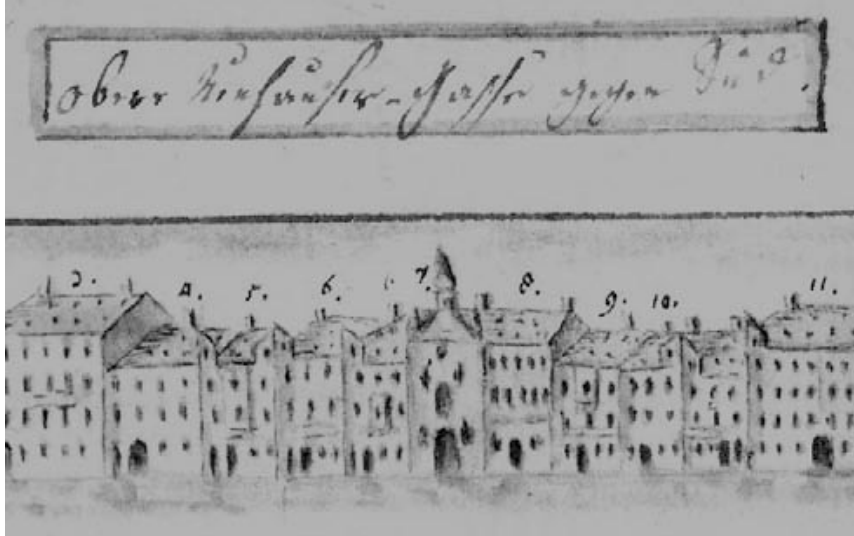 obere Neuhauser-Gasse gegen Süd.
3. 4. 5. 6. 7. 8. 9. 10. 11.